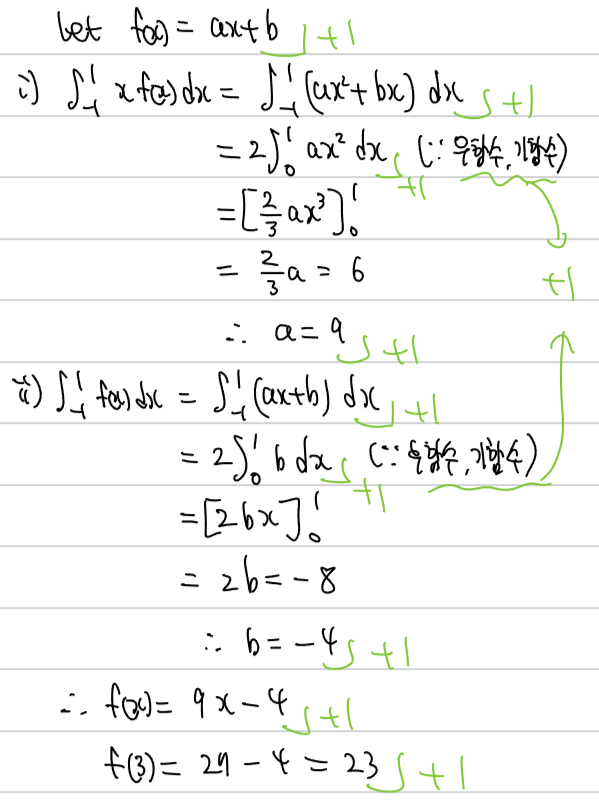 let f(x) = ax+b +1
i) ∫₋₁¹ x f(x) dx = ∫₋₁¹ (ax²+bx) dx +1
= 2∫₀¹ ax² dx +1 (∵ 우함수, 기함수)
= [2/3 ax³]₀¹
= 2/3 a = 6 +1
∴ a = 9 +1
ii) ∫₋₁¹ f(x) dx = ∫₋₁¹ (ax+b) dx +1
= 2∫₀¹ b dx +1 (∵ 우함수, 기함수)
= [2bx]₀¹
= 2b = -8
∴ b = -4 +1
∴ f(x) = 9x-4 +1
f(3) = 27 - 4 = 23 +1